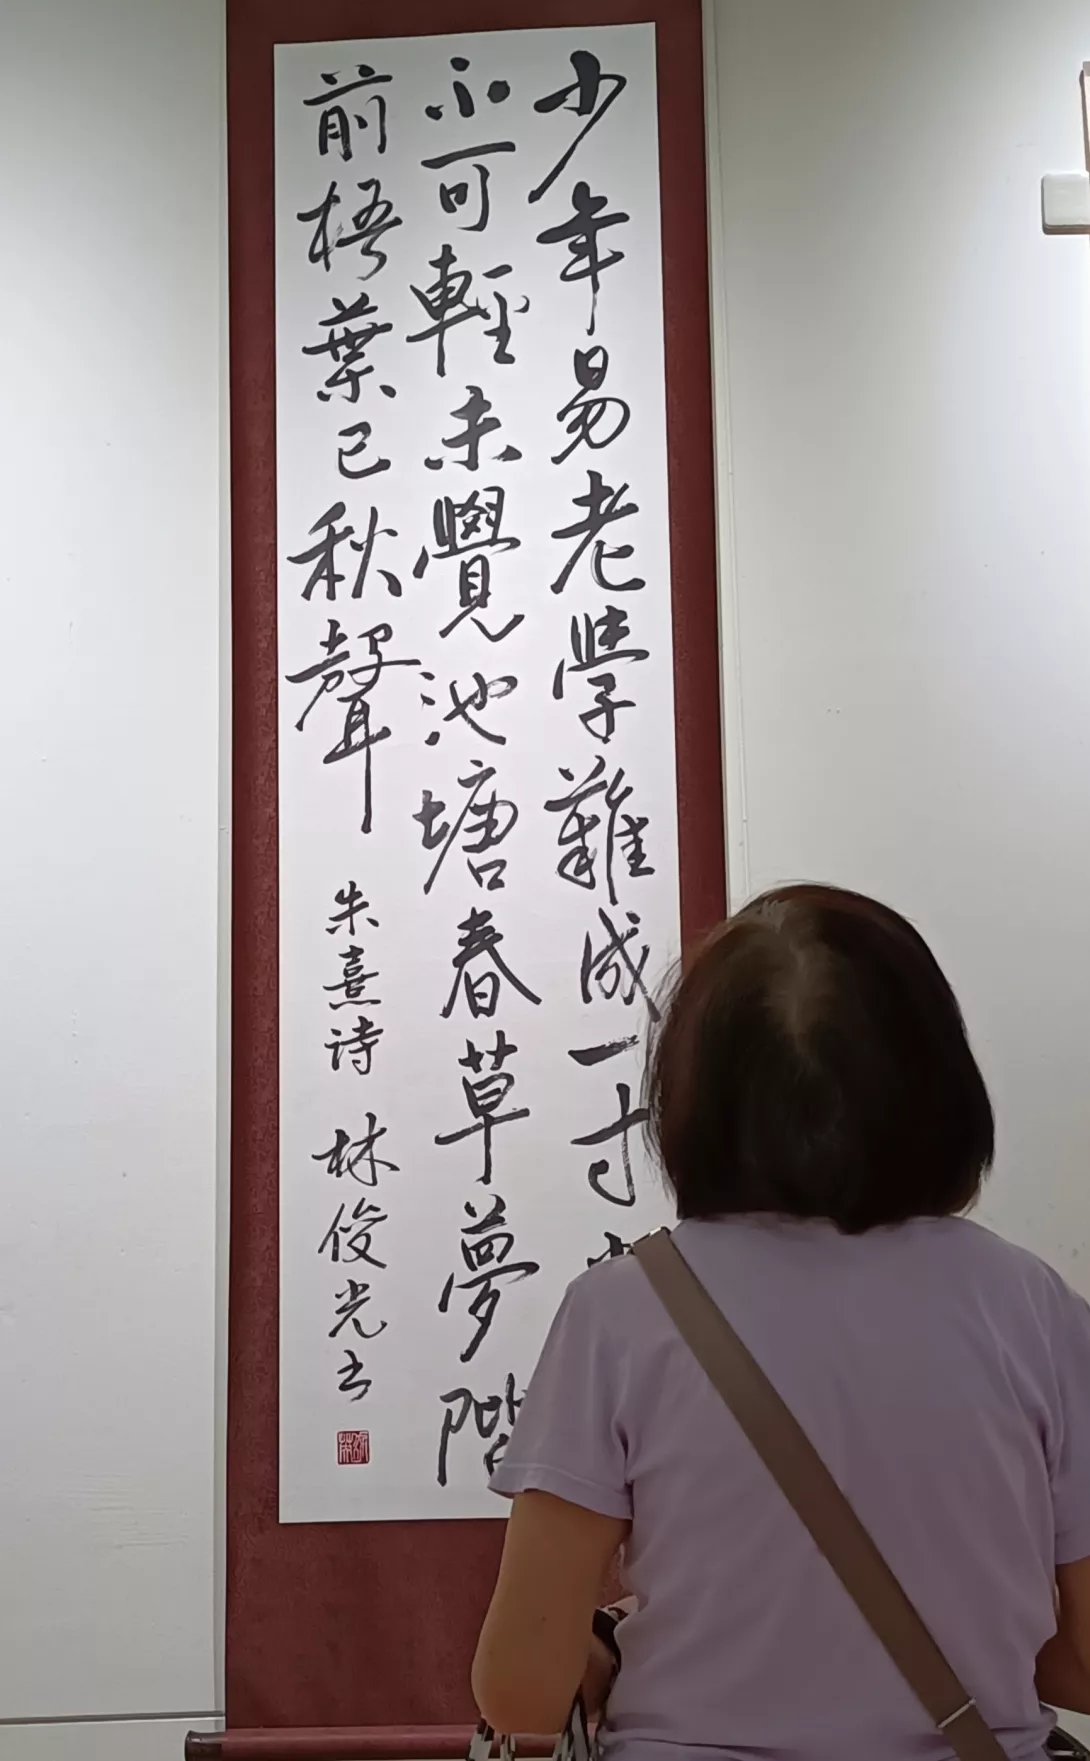 少年易老學難成一寸
不可輕未覺池塘春草夢階
前梧葉已秋聲
朱熹诗 林俊光书